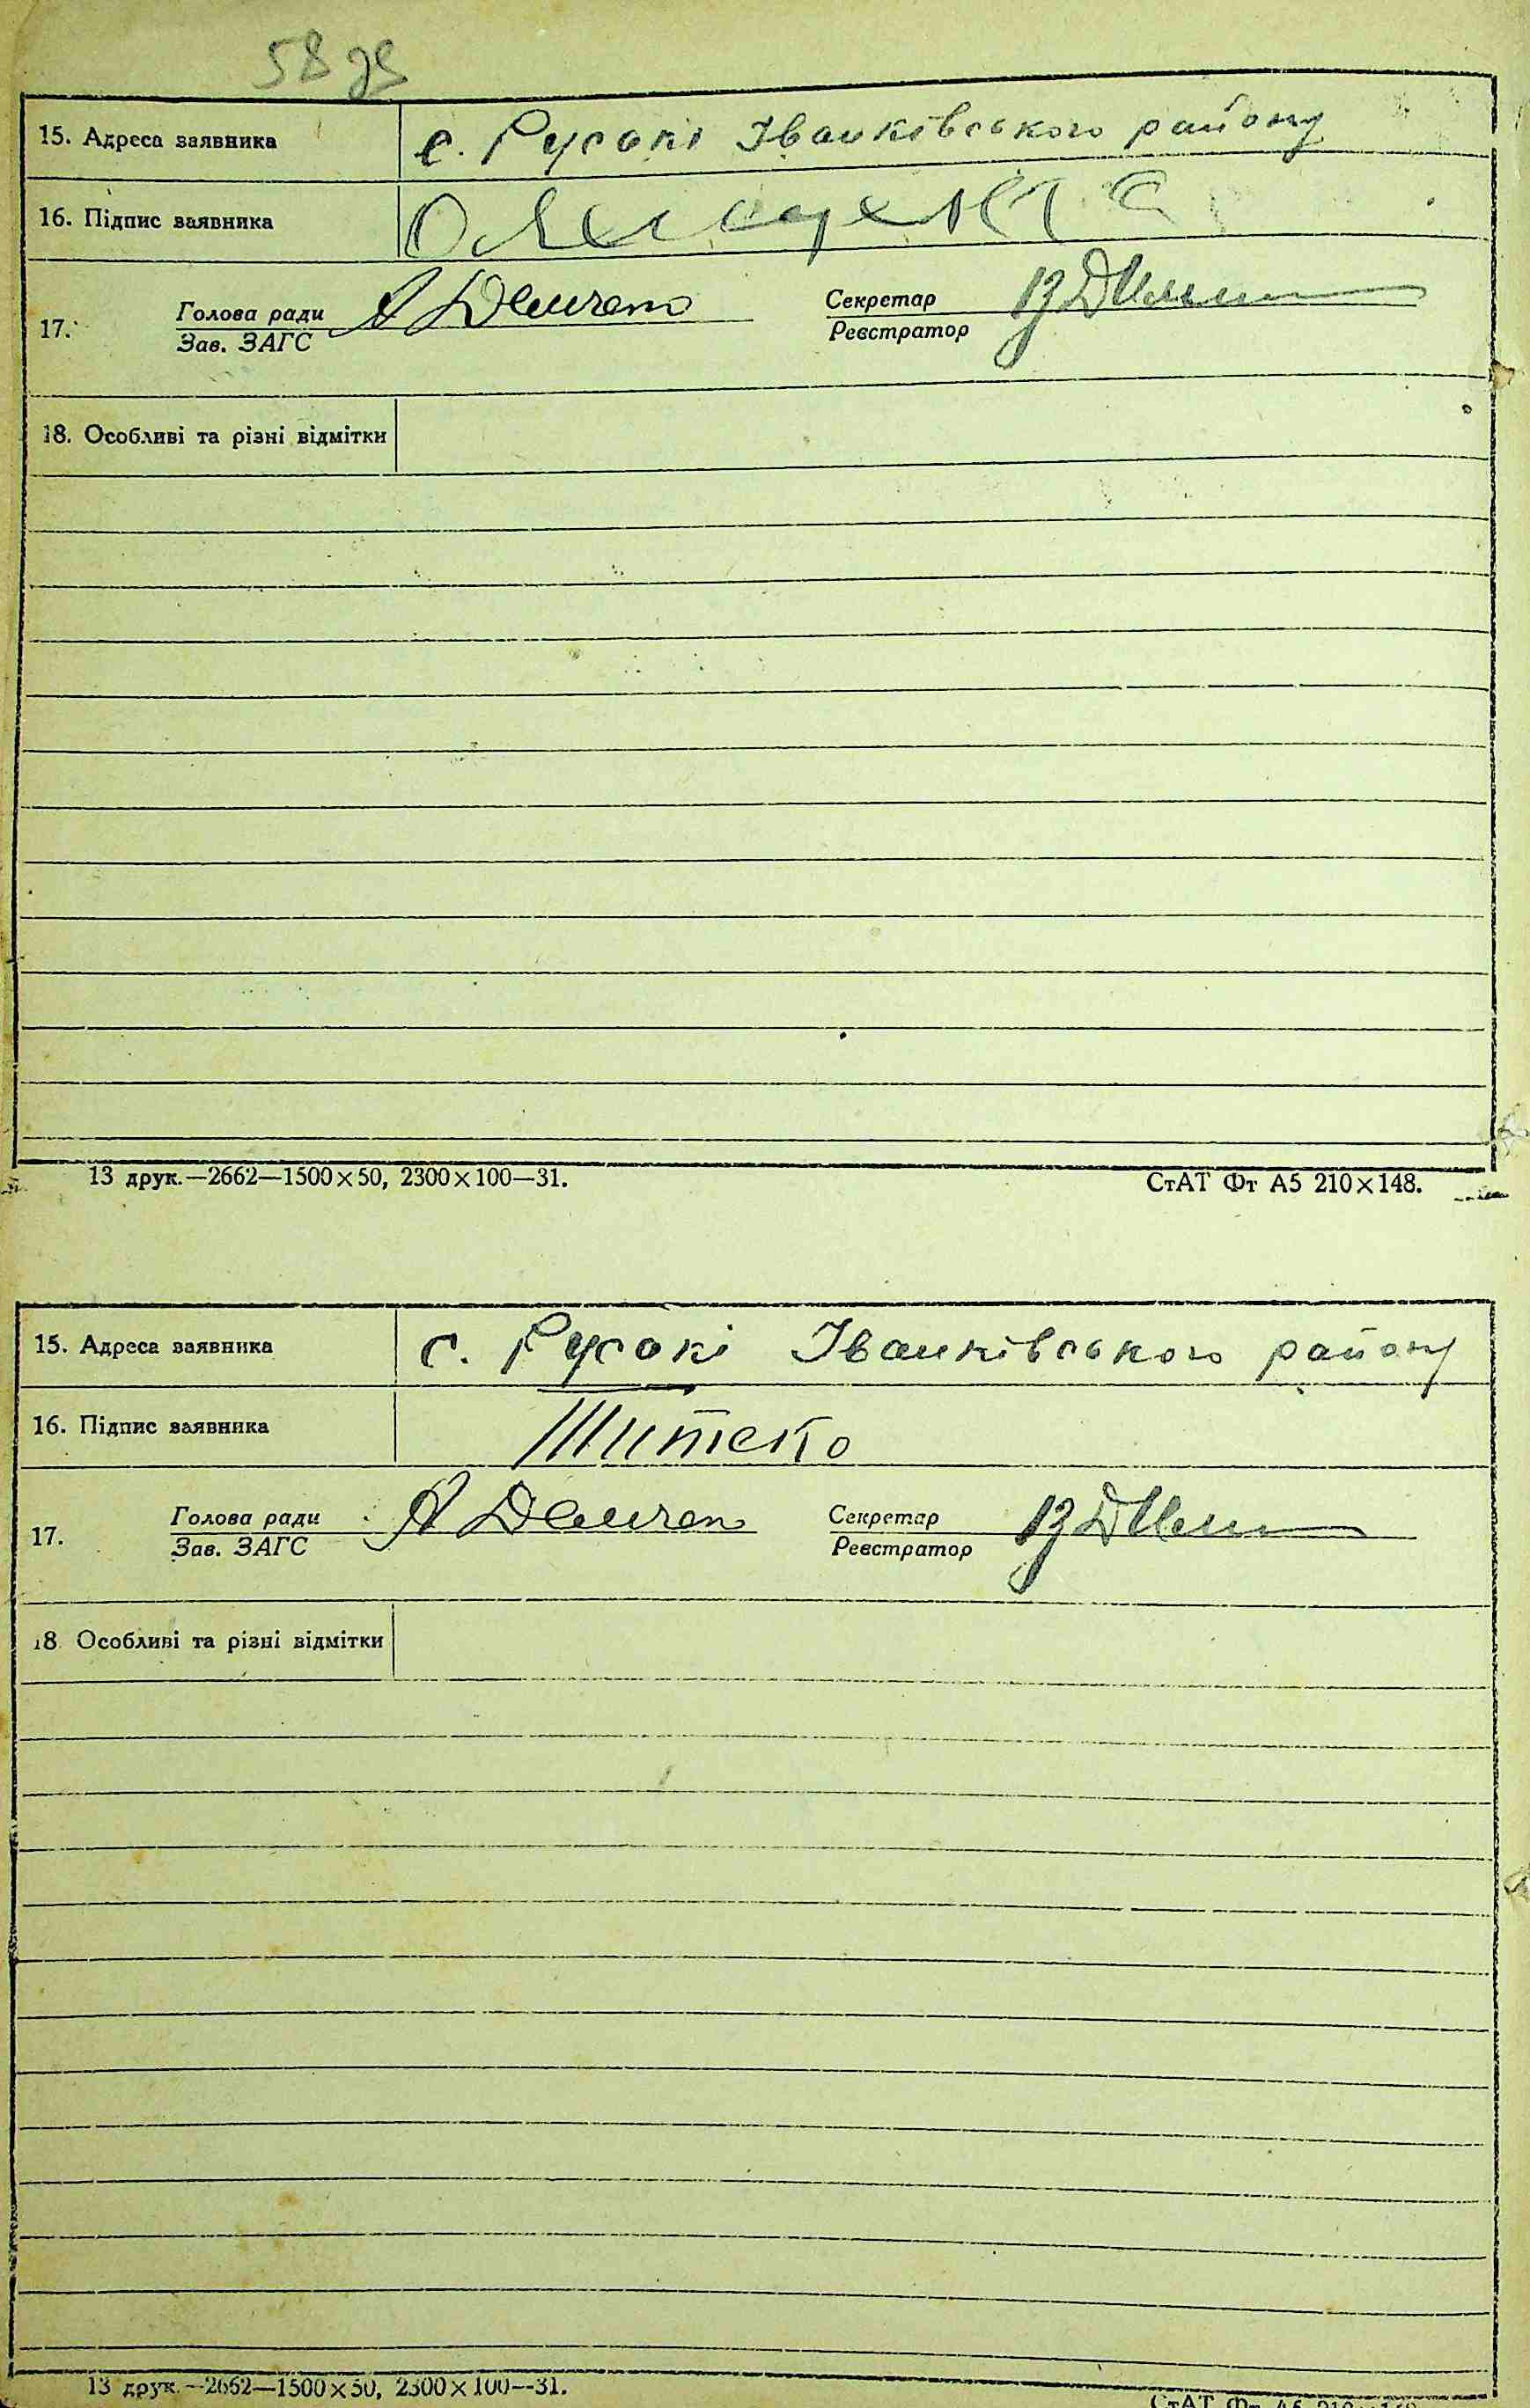 58 зв
15. Адреса заявника с. Русакі Іванківського району
16. Підпис заявника
17. Голова ради Секретар
Зав. ЗАГС Реєстратор
18. Особливі та різні відмітки
13 друк.—2662—1500×50, 2300×100—31. СтАТ Фт А5 210×148.
15. Адреса заявника с. Русакі Іванківського району
16. Підпис заявника Шитеко
17. Голова ради Секретар
Зав. ЗАГС Реєстратор
18 Особливі та різні відмітки
13 друк.—2662—1500×50, 2300×100—31.
СтАТ Фт А5 210×148